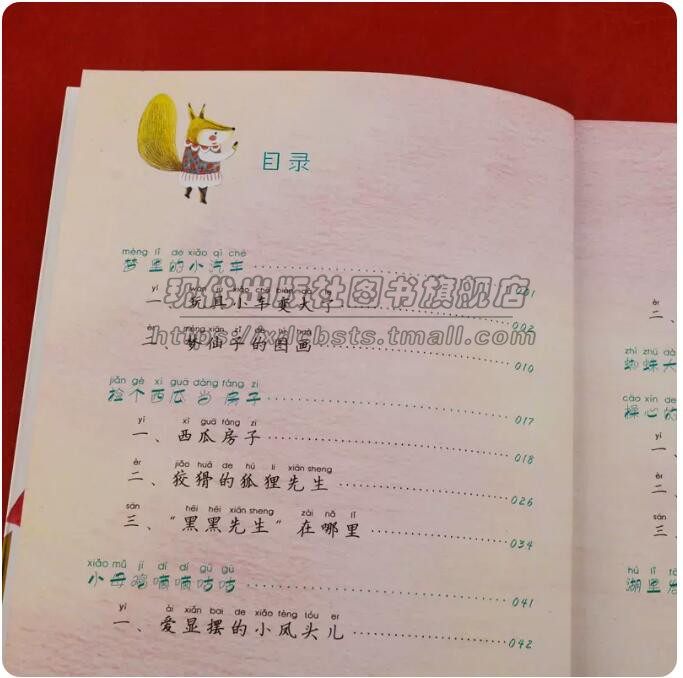 目录
mèng lǐ de xiǎo qì chē
梦里的小汽车 001
一、玩具小车变大车 002
现代出版社图书旗舰店
https://xdcbsts.tmall.com
èr mèng xiān zǐ de tú huà
二、梦仙子的图画 010
jiǎn gè xī guā dàng fáng zi
捡个西瓜当房子 017
yī xī guā fáng zi
一、西瓜房子 018
èr jiǎo huá de hú li xiān sheng
二、狡猾的狐狸先生 026
sān hēi hēi xiān sheng zài nǎ lǐ
三、“黑黑先生”在哪里 034
xiǎo mǔ jī dí dí gū gū
小母鸡嘀嘀咕咕 041
yī ài xiǎn bai de xiǎo fēng tóu er
一、爱显摆的小风头儿 042
èr
二、
zhī zhū dà
蜘蛛大
cāo xīn de
操心的
yī
一、
èr
二、
sān
三、
hú lǐ
湖里